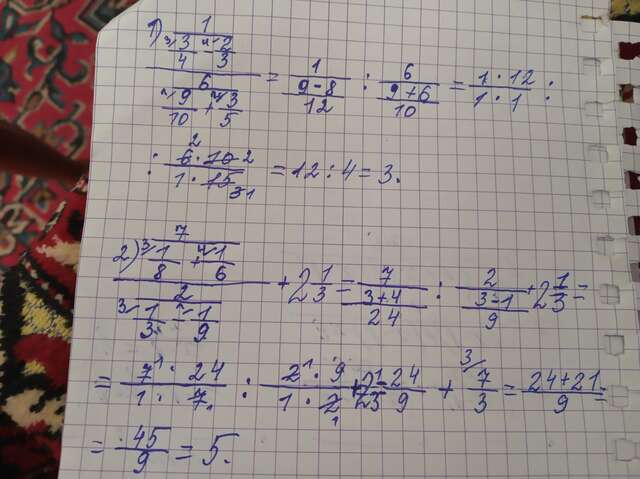 1) \frac{\frac{1}{\frac{3}{4} - \frac{2}{3}}}{\frac{6}{\frac{9}{10} + \frac{3}{5}}} = \frac{1}{\frac{9-8}{12}} : \frac{6}{\frac{9+6}{10}} = \frac{1 \cdot 12}{1 \cdot 1} :
: \frac{6 \cdot 10}{1 \cdot 15} = 12 : 4 = 3.
2) \frac{\frac{7}{\frac{1}{8} + \frac{1}{6}}}{\frac{2}{\frac{1}{3} - \frac{1}{9}}} + 2\frac{1}{3} = \frac{7}{\frac{3+4}{24}} : \frac{2}{\frac{3-1}{9}} + 2\frac{1}{3} =
= \frac{7 \cdot 24}{1 \cdot 7} : \frac{2 \cdot 9}{1 \cdot 2} + 2\frac{1}{3} = \frac{24}{9} + \frac{7}{3} = \frac{24+21}{9} =
= \frac{45}{9} = 5.